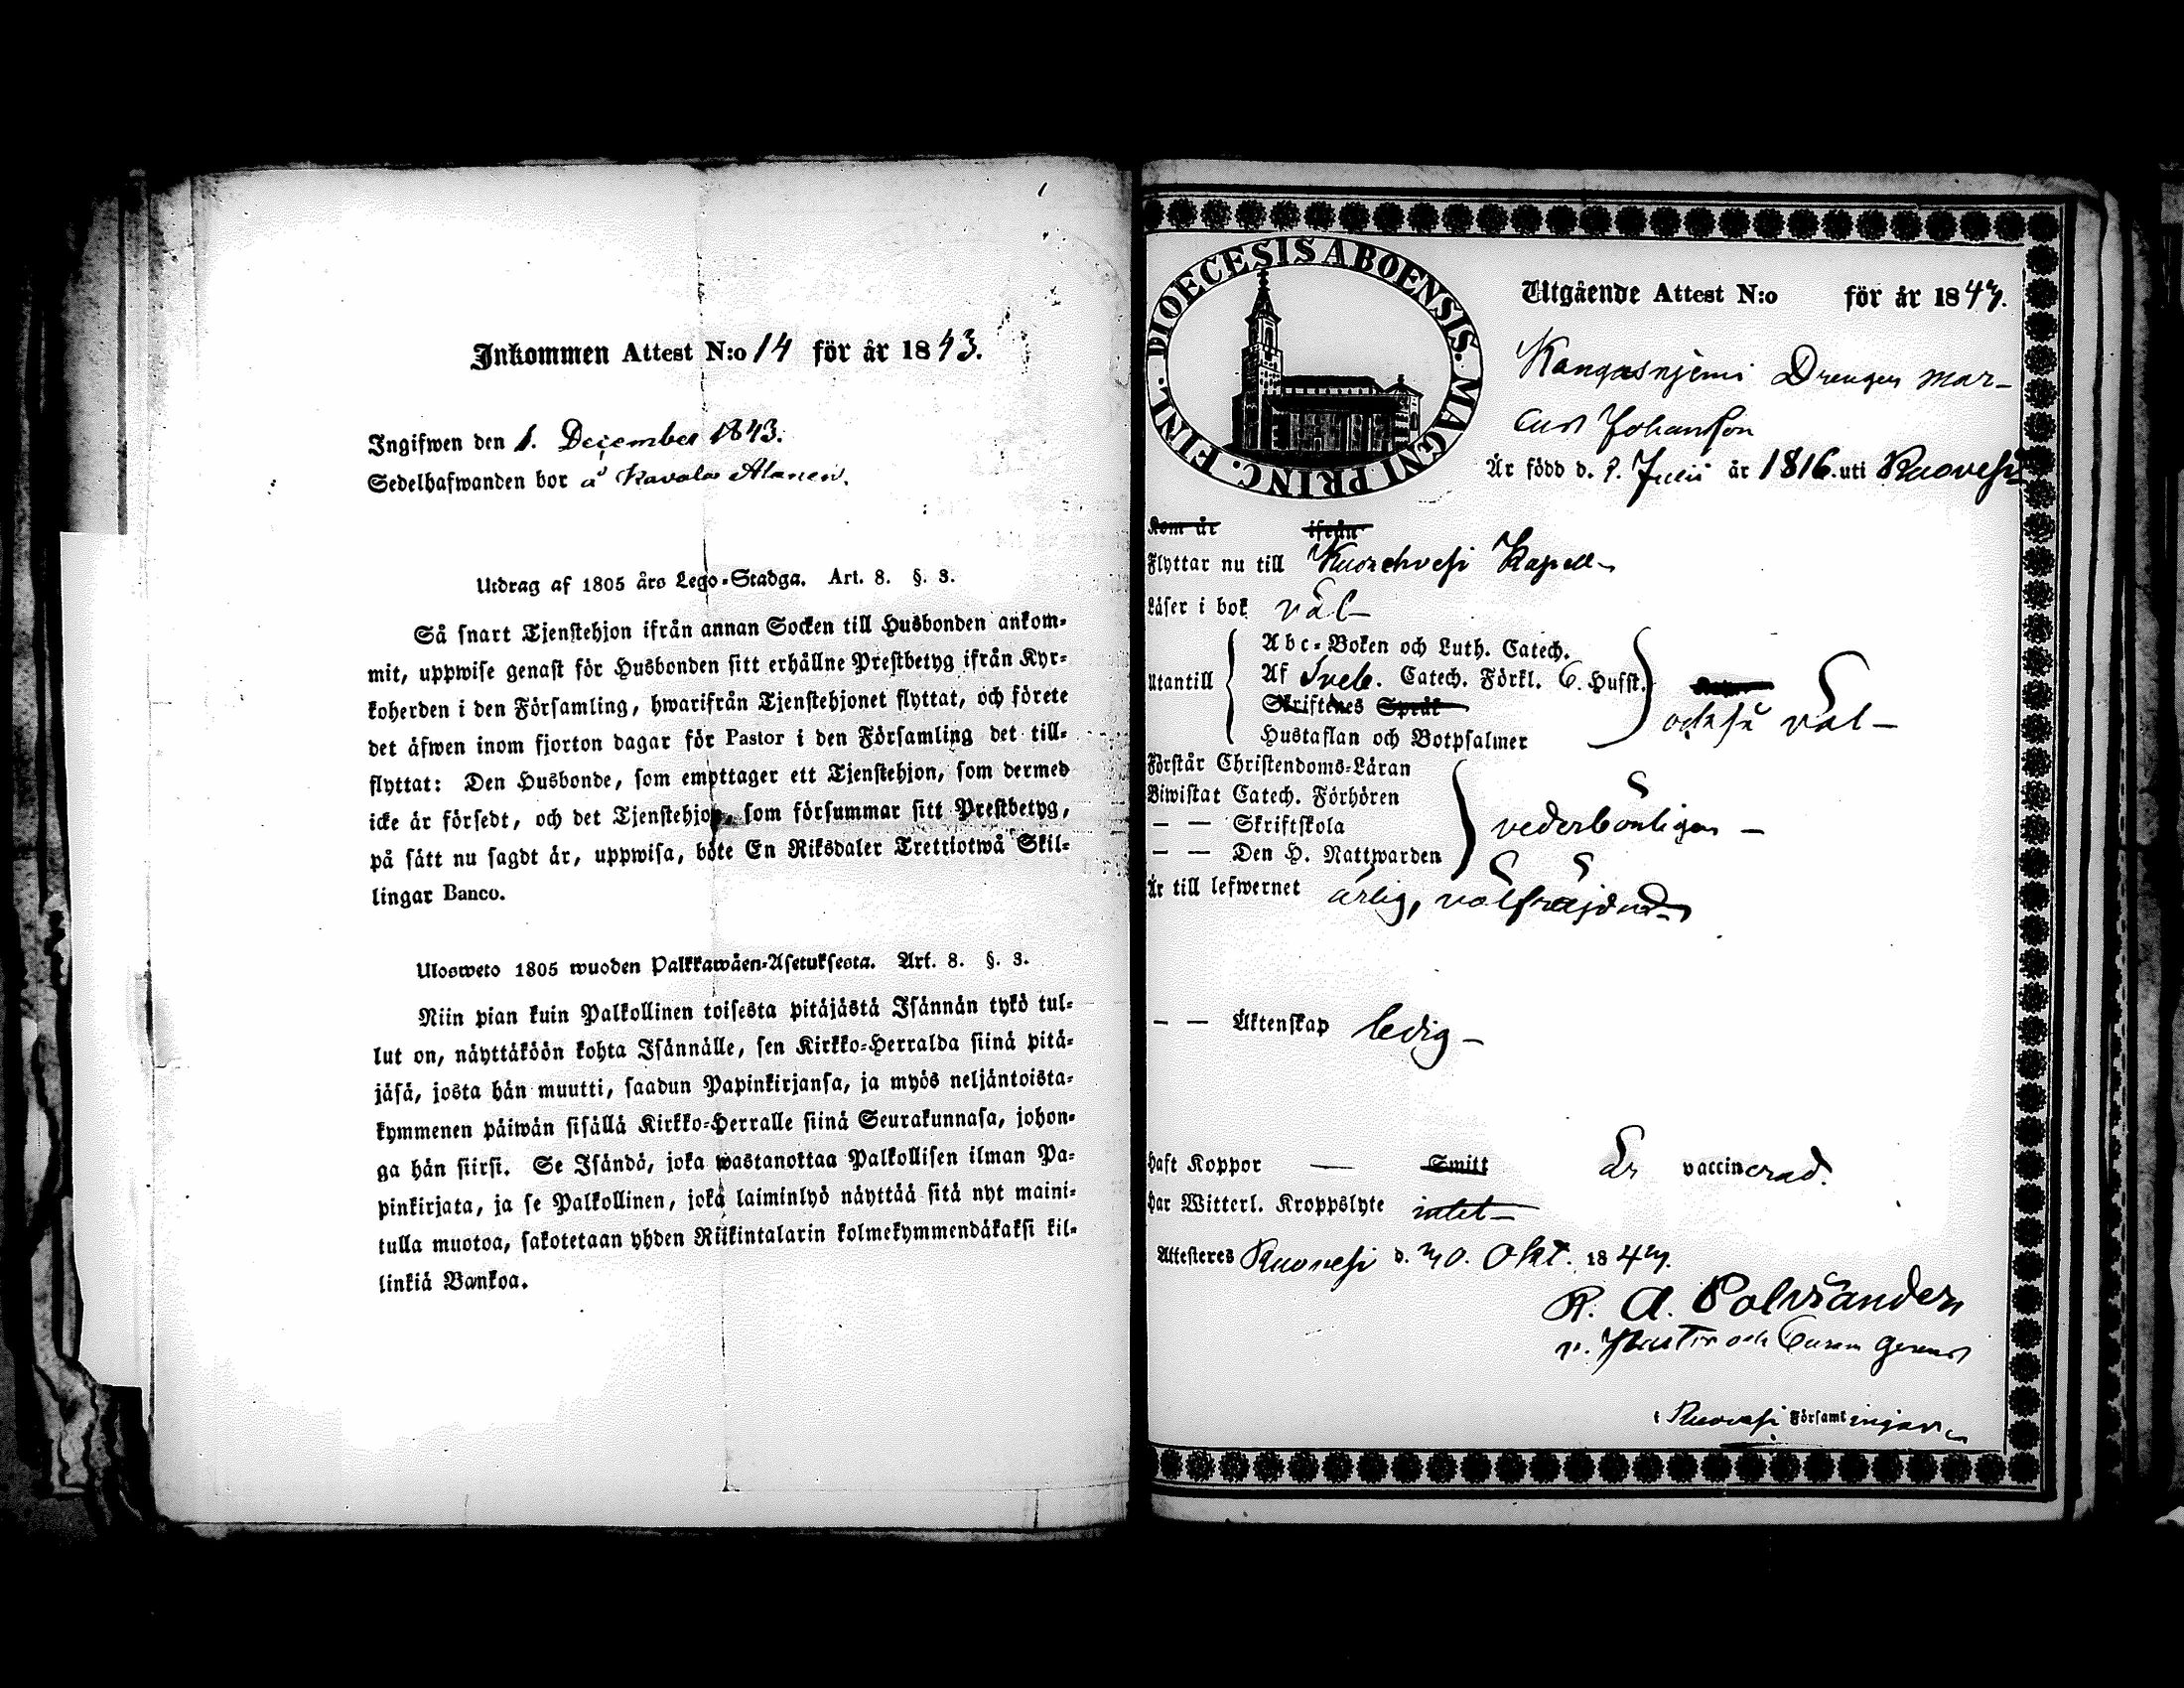 Inkommen Attest N:o 14 för år 1843.
Ingifwen den 1. December 1843.
Sedelhafwanden bor å Kavala Alanen.
Utdrag af 1805 års Lego-Stadga. Art. 8. §. 3.
Så snart Tjenstehjon ifrån annan Socken till Husbonden ankom-
mit, uppwise genast för Husbonden sitt erhållne Prestbetyg ifrån Kyr-
koherden i den Församling, hwarifrån Tjenstehjonet flyttat, och förete
det äfwen inom fjorton dagar för Pastor i den Församling det till-
flyttat: Den Husbonde, som empttager ett Tjenstehjon, som dermed
icke är försedt, och det Tjenstehjon, som försummar sitt Prestbetyg,
på sätt nu sagdt är, uppwisa, böte En Riksdaler Trettiotwå Skil-
lingar Banco.
Ulosweto 1805 wuoden Palkkawäen-Asetuksesta. Art. 8. §. 3.
Niin pian kuin Palkollinen toisesta pitäjästä Isännän tykö tul-
lut on, näyttäköön kohta Isännälle, sen Kirkko-Herralda siinä pitä-
jäsä, josta hän muutti, saadun Papinkirjansa, ja myös neljäntoista-
kymmenen päiwän sisällä Kirkko-Herralle siinä Seurakunnasa, johon-
ga hän siirsi. Se Isändä, joka wastanottaa Palkollisen ilman Pa-
pinkirjata, ja se Palkollinen, joka laiminlyö näyttää sitä nyt maini-
tulla muotoa, sakotetaan yhden Riikintalarin kolmekymmendäkaksi kil-
linkiä Bankoa.
DIOECESIS ABOENSIS. MAGNI PRINC. FINL.
Utgående Attest N:o för år 1843.
Kangasnjemi Drengen Mar-
cus Johansson
Är född d. 9. Julii år 1816. uti Ruovesi
Kom år ifrån
Flyttar nu till Kuorehvesi Kapell
Läser i bok väl
Utantill
Abc-Boken och Luth. Catech.
Af Sveb. Catech. Förkl. C. Hufst.
Skriftenes Språk
också väl
Hustaflan och Botpsalmer
Förstår Christendoms-Läran
Biwistat Catech. Förhören
— — Skriftskola
vederbörligen
— — Den H. Nattwarden
Är till lefwernet ärlig, välfräjdad
— — Äktenskap ledig
Haft Koppor — Smitt Är vaccinerad.
Har Witterl. Kroppslyte intet
Attesteres Ruovesi d. 30. Okt. 1843.
R. A. Polviander
v. Pastor och Curam Gerens
i Ruovesi Församlingar